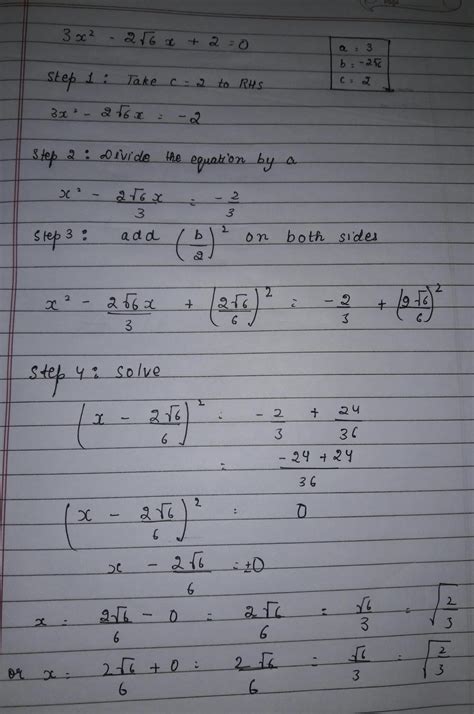 3x² - 2√6 x + 2 = 0
a = 3
b = -2√6
c = 2
Step 1: Take c = 2 to RHS
3x² - 2√6 x = -2
Step 2: Divide the equation by a
x² - 2√6 x/3 = -2/3
Step 3: add (b/2)² on both sides
x² - 2√6 x/3 + (2√6/6)² = -2/3 + (2√6/6)²
Step 4: Solve
(x - 2√6/6)² = -2/3 + 24/36
= -24+24/36
(x - 2√6/6)² = 0
x - 2√6/6 = ±0
x = 2√6/6 - 0 = 2√6/6 = √6/3 = √(2/3)
or x = 2√6/6 + 0 = 2√6/6 = √6/3 = √(2/3)